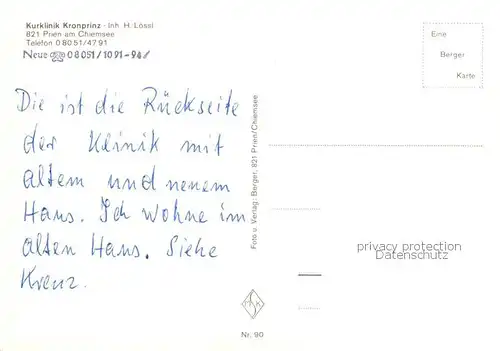 Kurklinik Kronprinz - Inh. H. Lössl
821 Prien am Chiemsee
Telefon 0 80 51/47 91
Neue ☎ 08051/1091-94/
Die ist die Rückseite
der Klinik mit
altem und neuem
Haus. Ich wohne im
alten Haus. Siehe
Kreuz.
Foto u. Verlag: Berger, 821 Prien/Chiemsee
Nr. 90
Eine
Berger
Karte
privacy protection
Datenschutz